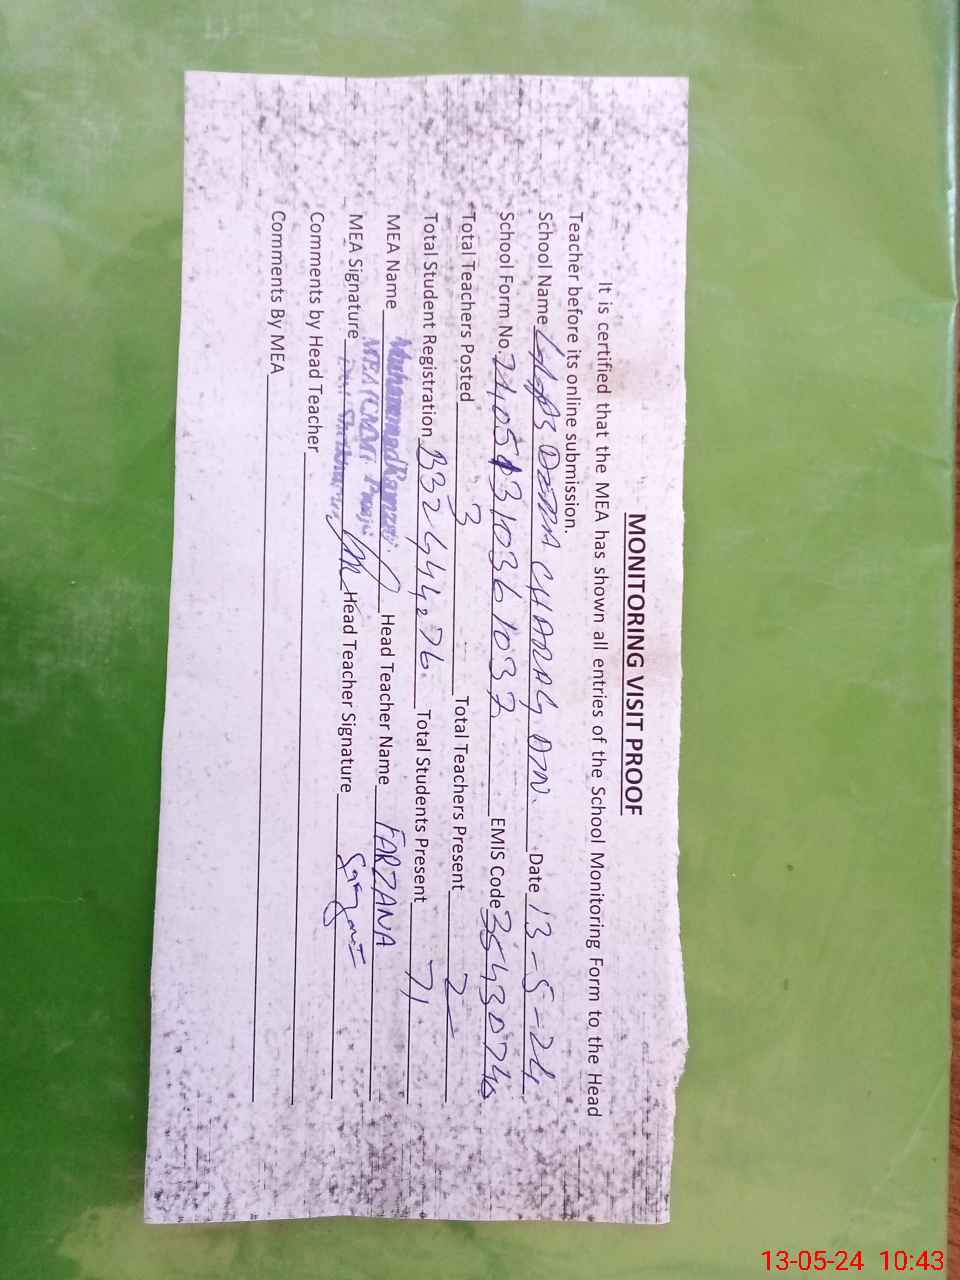 MONITORING VISIT PROOF
It is certified that the MEA has shown all entries of the School Monitoring Form to the Head
Teacher before its online submission.
School Name DERA CHARAG DIN. Date 13-5-24
School Form No. EMIS Code 35430740
Total Teachers Posted 3 Total Teachers Present 2
Total Student Registration Total Students Present 71
MEA Name Muhammad Ramzan Head Teacher Name FARZANA
MEA Signature Head Teacher Signature
Comments by Head Teacher
Comments By MEA
13-05-24 10:43